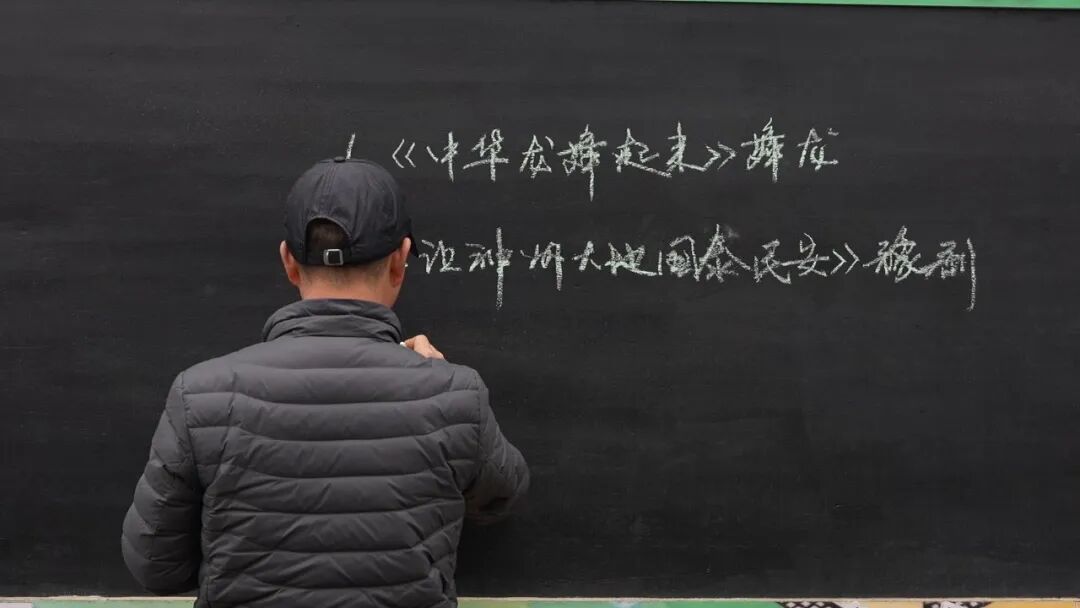 1 《中华龙舞起来》舞龙
让神州大地国泰民安》